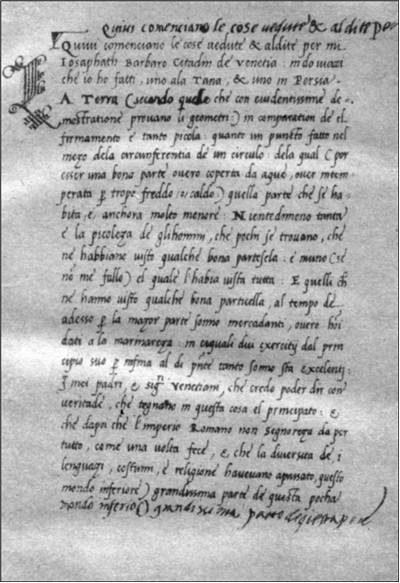 Quivi comenciano le cose vedute & aldite per
Quivi comenciano le cose vedute & aldite per mi
Iosaphath Barbaro Citadin de Venetia: in do viazi
che io ho fatti, uno ala Tana, & uno in Persia.
LA Terra (secondo quelle che con evidentissime de=
mostratione provano li geometri) in comparation de el
firmamento e tanto picola: quanto un puncto fatto nel
mezo dela circunferentia de un circulo: dela qual (por
esser una bona parte overo coperta da aque, over intem=
perata per tropo freddo /o/ caldo) quella parte che se ha=
bita, e, anchora molto menore: Nientedimeno tanta
e la picoleza de gli homini, che pochi se trovano, che
ne habbiano visto qualche bona partesela: e niuno (se
no me fallo) el quale l'habia vista tutta: E quelli ch
ne hanno visto qualche bona particella, al tempo de
adesso per la mayor parte sonno mercadanti, overo hoi
dati a la marinareza: in quali dui exercitij dal prin
cipio suo per infina al di pnte tanto sonno sta excelentj
I miei padri, e sigri Venetiani, che credo poder dir con
veritade, che tegnano in questa cosa el principato: E
che dapoi che l'imperio Romano non segnoreza da per
tutto, come una volta fece, e, che la diversita de i
lenguazi, costumi, e religione havevano apassato, questo
mondo inferiore) grandissima parte de questa pocha
mondo inferio() grandissima parte